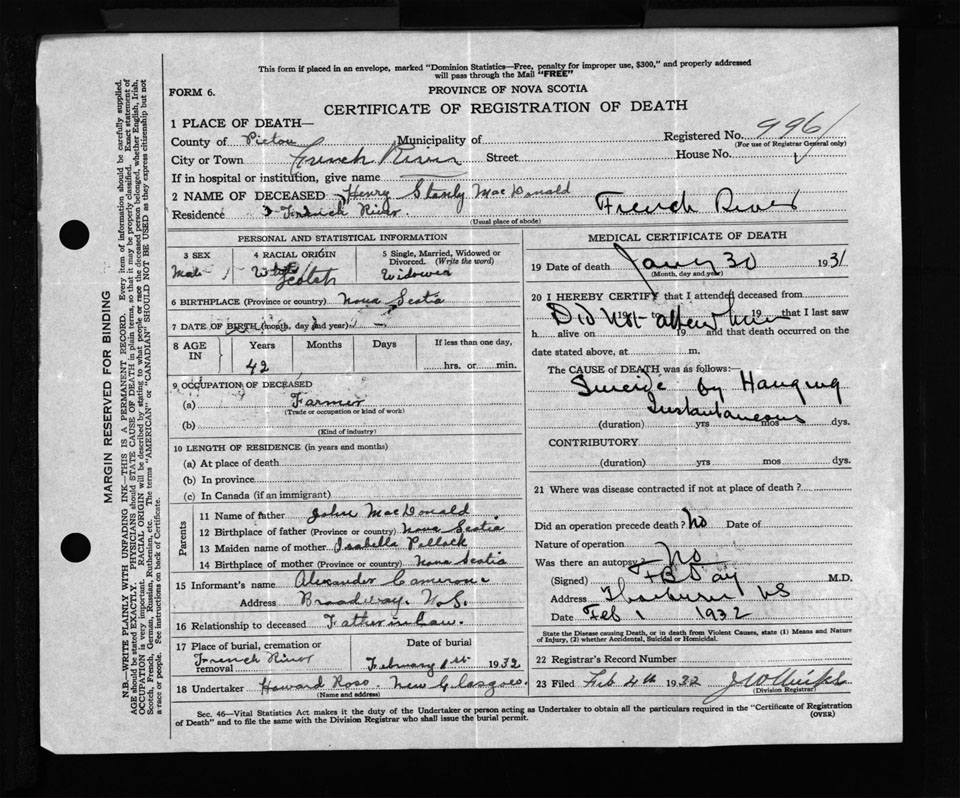 This form if placed in an envelope, marked "Dominion Statistics—Free, penalty for improper use, $300," and properly addressed
will pass through the Mail "FREE"
FORM 6.
PROVINCE OF NOVA SCOTIA
CERTIFICATE OF REGISTRATION OF DEATH
1 PLACE OF DEATH—
Registered No. 996
(For use of Registrar General only)
County of Pictou Municipality of
City or Town French River Street House No.
If in hospital or institution, give name
2 NAME OF DECEASED Henry Stanly MacDonald
Residence French River French River
(Usual place of abode)
PERSONAL AND STATISTICAL INFORMATION
3 SEX 4 RACIAL ORIGIN 5 Single, Married, Widowed or
Divorced. (Write the word)
Male White Scotch Widowed
6 BIRTHPLACE (Province or country) Nova Scotia
7 DATE OF BIRTH (month, day and year)
8 AGE IN Years Months Days If less than one day,
42 hrs. or min.
9 OCCUPATION OF DECEASED
(a) Farmer
(Trade or occupation or kind of work)
(b)
(Kind of industry)
10 LENGTH OF RESIDENCE (in years and months)
(a) At place of death
(b) In province
(c) In Canada (if an immigrant)
Parents
11 Name of father John MacDonald
12 Birthplace of father (Province or country) Nova Scotia
13 Maiden name of mother Isabella Pollock
14 Birthplace of mother (Province or country) Nova Scotia
15 Informant's name Alexander Cameron
Address Broadway. N.S.
16 Relationship to deceased Father in Law.
17 Place of burial, cremation or removal Date of burial
French River February 1st 1932
18 Undertaker Howard Ross. New Glasgow.
(Name and address)
MEDICAL CERTIFICATE OF DEATH
19 Date of death Jany 30 1931
(Month, day and year)
20 I HEREBY CERTIFY that I attended deceased from
Did not attend him
19 to 19 that I last saw
h alive on 19 and that death occurred on the
date stated above, at m.
The CAUSE of DEATH was as follows:—
Suicide by Hanging
Instantaneous
(duration) yrs mos dys.
CONTRIBUTORY
(duration) yrs mos dys.
21 Where was disease contracted if not at place of death?
Did an operation precede death? No Date of
Nature of operation
Was there an autopsy? No
(Signed) M.D.
Address Thorburn NS
Date Feb 1 1932
State the Disease causing Death, or in death from Violent Causes, state (1) Means and Nature
of Injury, (2) whether Accidental, Suicidal or Homicidal.
22 Registrar's Record Number
23 Filed Feb 4th 1932
(Division Registrar)
Sec. 46—Vital Statistics Act makes it the duty of the Undertaker or person acting as Undertaker to obtain all the particulars required in the "Certificate of Registration
of Death" and to file the same with the Division Registrar who shall issue the burial permit.
(OVER)
MARGIN RESERVED FOR BINDING
N.B.—WRITE PLAINLY WITH UNFADING INK—THIS IS A PERMANENT RECORD. Every item of information should be carefully supplied.
AGE should be stated EXACTLY. PHYSICIANS should STATE CAUSE OF DEATH in plain terms, so that it may be properly classified. Exact statement of
OCCUPATION is very important. RACIAL ORIGIN will be described by stating to what people or race the deceased person belonged, whether English, Irish,
Scotch, French, German, Russian, Ruthenian, etc. The terms "AMERICAN" or "CANADIAN" SHOULD NOT BE USED as they express citizenship but not
a race or people. See instructions on back of Certificate.